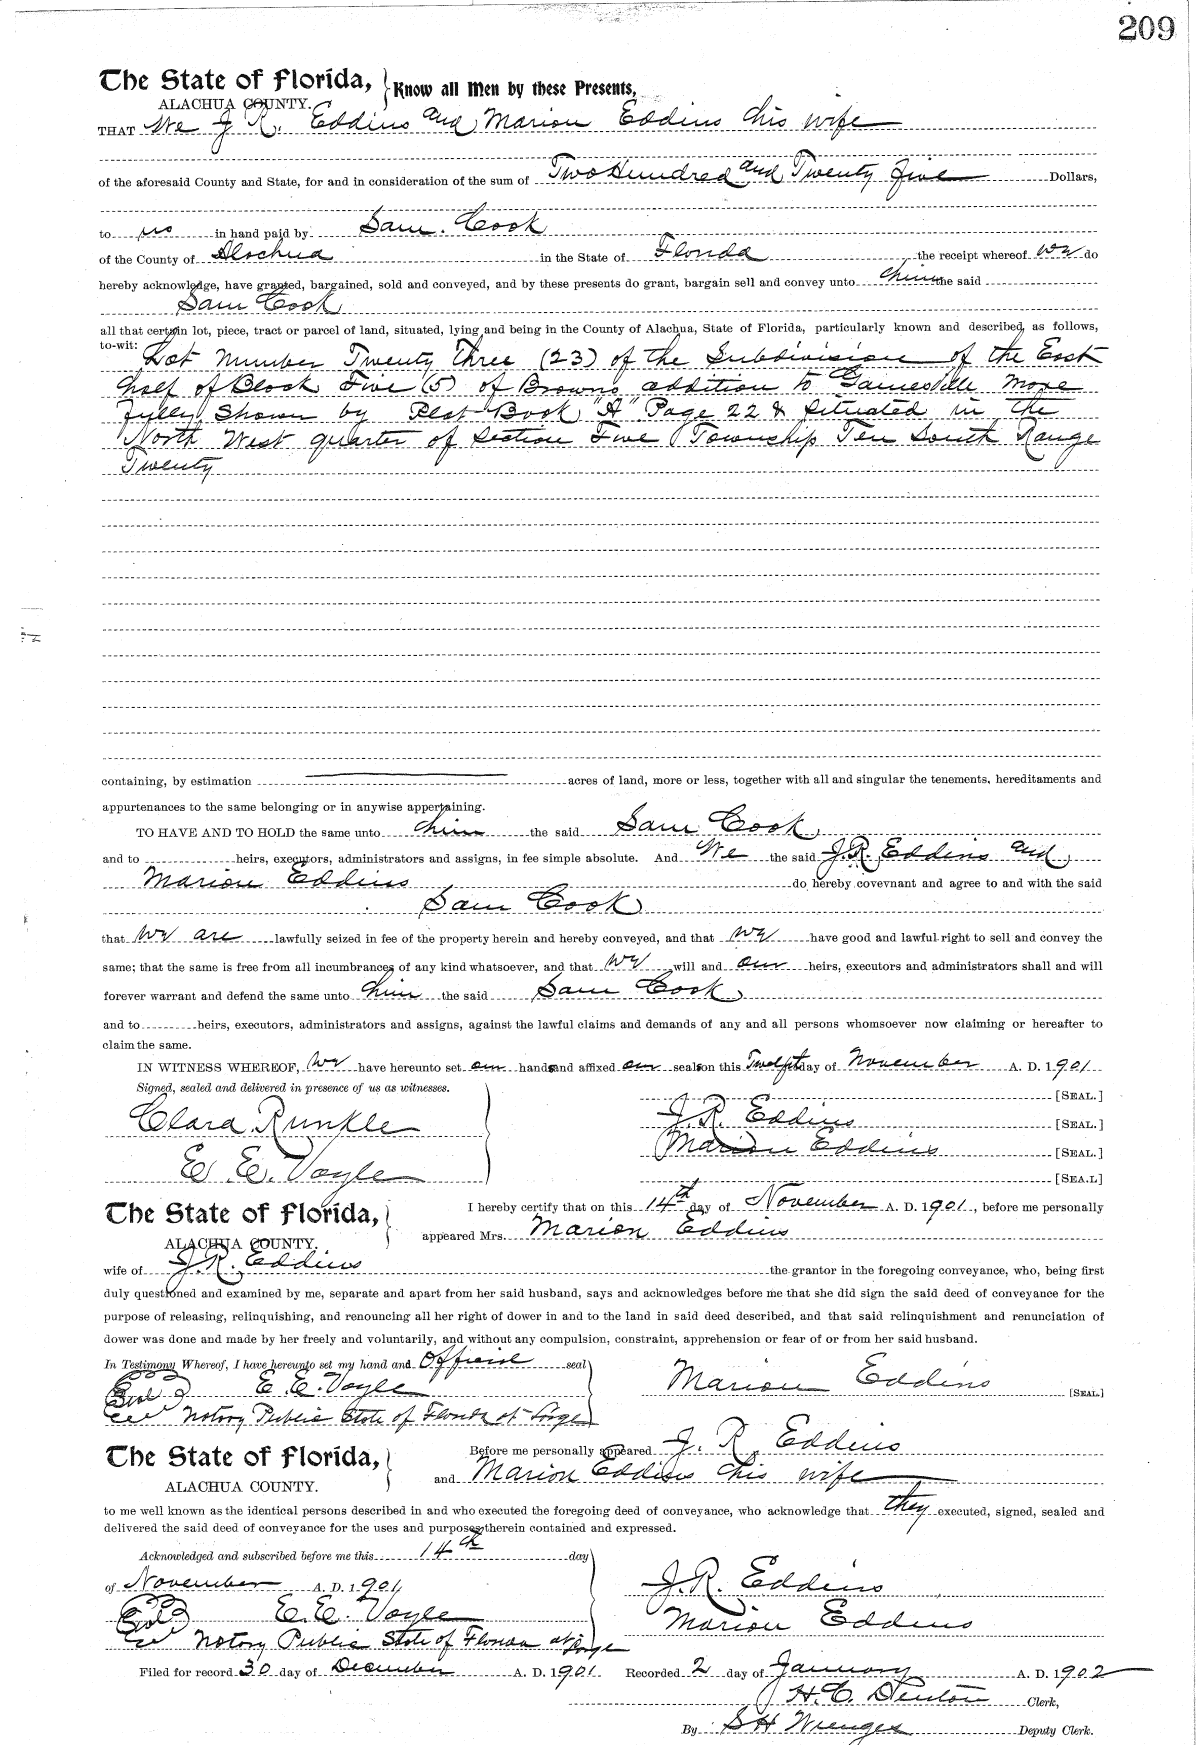 209
The State of Florida, Know all Men by these Presents,
ALACHUA COUNTY.
THAT We J R. Eddins and Marion Eddins his wife
of the aforesaid County and State, for and in consideration of the sum of Two Hundred and Twenty five Dollars,
to us in hand paid by Sam. Cook
of the County of Alachua in the State of Florida the receipt whereof we do
hereby acknowledge, have granted, bargained, sold and conveyed, and by these presents do grant, bargain sell and convey unto him the said
Sam Cook
all that certain lot, piece, tract or parcel of land, situated, lying and being in the County of Alachua, State of Florida, particularly known and described, as follows,
to-wit:
Lot Number Twenty Three (23) of the Subdivision of the East
half of Block Five (5) of Browns addition to Gainesville more
fully shown by Plat Book "A" Page 22 & situated in the
North West quarter of Section Five Township Ten South Range
Twenty
containing, by estimation acres of land, more or less, together with all and singular the tenements, hereditaments and
appurtenances to the same belonging or in anywise appertaining.
TO HAVE AND TO HOLD the same unto him the said Sam Cook
and to heirs, executors, administrators and assigns, in fee simple absolute. And We the said J.R. Eddins and
Marion Eddins do hereby covevnant and agree to and with the said
Sam Cook
that we are lawfully seized in fee of the property herein and hereby conveyed, and that we have good and lawful right to sell and convey the
same; that the same is free from all incumbrances of any kind whatsoever, and that we will and our heirs, executors and administrators shall and will
forever warrant and defend the same unto him the said Sam Cook
and to heirs, executors, administrators and assigns, against the lawful claims and demands of any and all persons whomsoever now claiming or hereafter to
claim the same.
IN WITNESS WHEREOF, we have hereunto set our hands and affixed our seals on this Twelfth day of November A. D. 1901
Signed, sealed and delivered in presence of us as witnesses. [SEAL.]
Clara Runkle J. R. Eddins [SEAL.]
Marion Eddins [SEAL.]
E. E. Voyle [SEA.L]
The State of Florida, I hereby certify that on this 14th day of November A. D. 1901, before me personally
ALACHUA COUNTY. appeared Mrs. Marion Eddins
wife of J.R. Eddins the grantor in the foregoing conveyance, who, being first
duly questioned and examined by me, separate and apart from her said husband, says and acknowledges before me that she did sign the said deed of conveyance for the
purpose of releasing, relinquishing, and renouncing all her right of dower in and to the land in said deed described, and that said relinquishment and renunciation of
dower was done and made by her freely and voluntarily, and without any compulsion, constraint, apprehension or fear of or from her said husband.
In Testimony Whereof, I have hereunto set my hand and Official seal
Seal E. E. Voyle Marion Eddins [SEAL.]
Notary Public State of Florida at Large
The State of Florida, Before me personally appeared J. R. Eddins
ALACHUA COUNTY. and Marion Eddins his wife
to me well known as the identical persons described in and who executed the foregoing deed of conveyance, who acknowledge that they executed, signed, sealed and
delivered the said deed of conveyance for the uses and purposes therein contained and expressed.
Acknowledged and subscribed before me this 14th day
of November A. D. 1901 J. R. Eddins
Seal E. E. Voyle Marion Eddins
Notary Public State of Florida at Large
Filed for record 30 day of December A. D. 1901 Recorded 2 day of January A. D. 1902
H. C. Denton Clerk,
By S H Wienges Deputy Clerk.